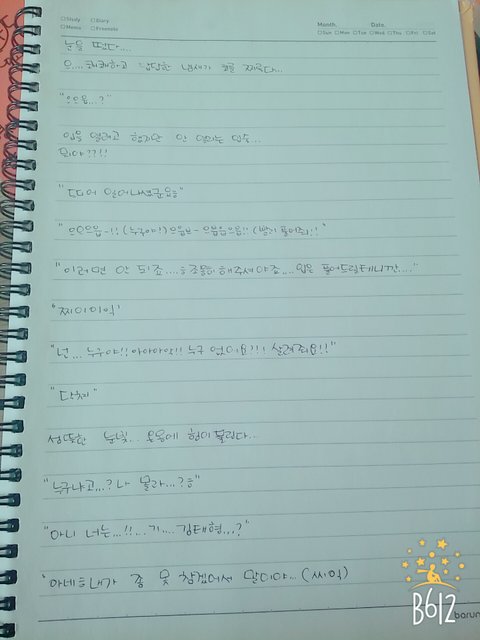 □Study □Diary
□Memo □Freenote
Month. Date.
□Sun □Mon □Tue □Wed □Thu □Fri □Sat
눈을 떴다....
으.... 퀘퀘하고 답답한 냄새가 코를 찌른다...
"으으음..?"
입을 열려고 했지만 안 열리는 입술...
뭐야??!!
"드디어 일어나셨군요ㅎ"
"으으으읍-!! (누구야!) 으읍브- 으읍읍으읍!! (빨리 풀어줘!!"
"이러면 안 되죠....ㅎ 조용히 해주셔야죠.... 입을 풀어드릴테니깐...."
'찌이이익'
"넌... 누구야!! 아아아악!! 누구 없어요?!! 살려줘요!!"
"닥쳐"
섬뜩한 눈빛.. 온몸에 힘이 풀린다..
"누구냐고...? 나 몰라...?ㅎ"
"아니 너는...!!... 기.... 김태형...?"
"아네ㅎ 내가 좀 못 참겠어서 말이야... (씨익)
B612
barun